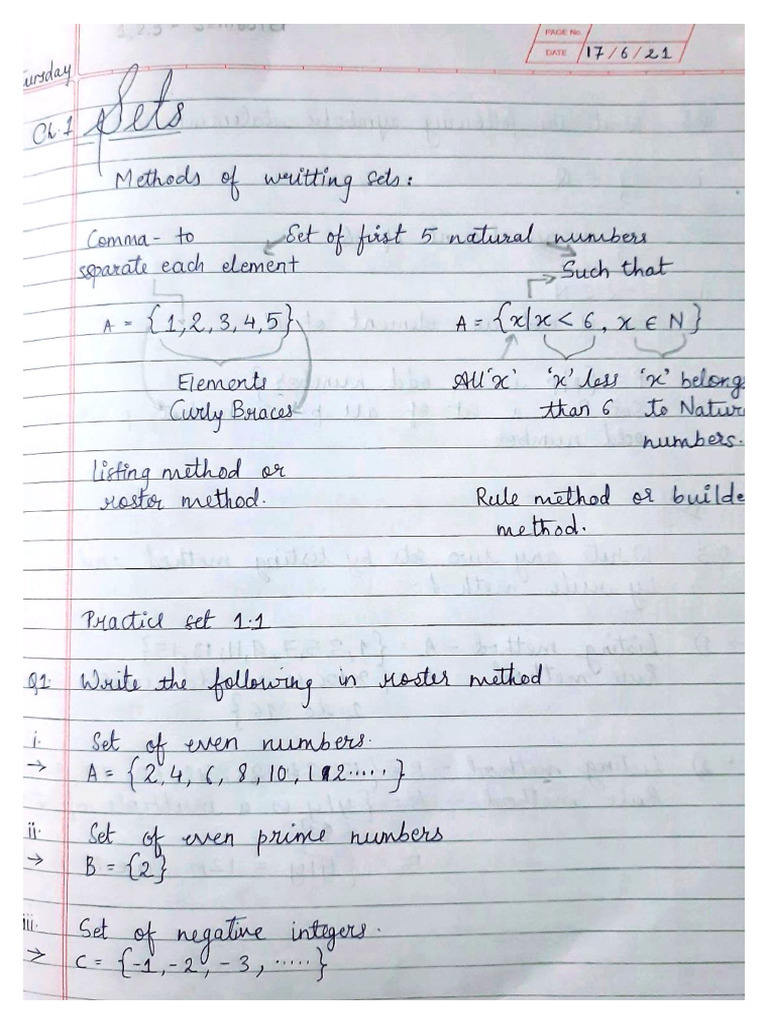 PAGE No.
DATE 17/6/21
ursday
Ch.1 Sets
Methods of writting sets:
Comma - to separate each element
Set of first 5 natural numbers
Such that
A = {1,2,3,4,5}
A = {x|x < 6, x ∈ N}
Elements
Curly Braces
All 'x'
'x' less
than 6
'x' belong
to Natur
numbers.
Listing method or
roster method.
Rule method or builde
method.
Practice set 1.1
Q1. Write the following in roster method
i. Set of even numbers.
→ A = {2, 4, 6, 8, 10, 12.....}
ii. Set of even prime numbers
→ B = {2}
iii. Set of negative integers.
→ C = {-1, -2, -3, .....}